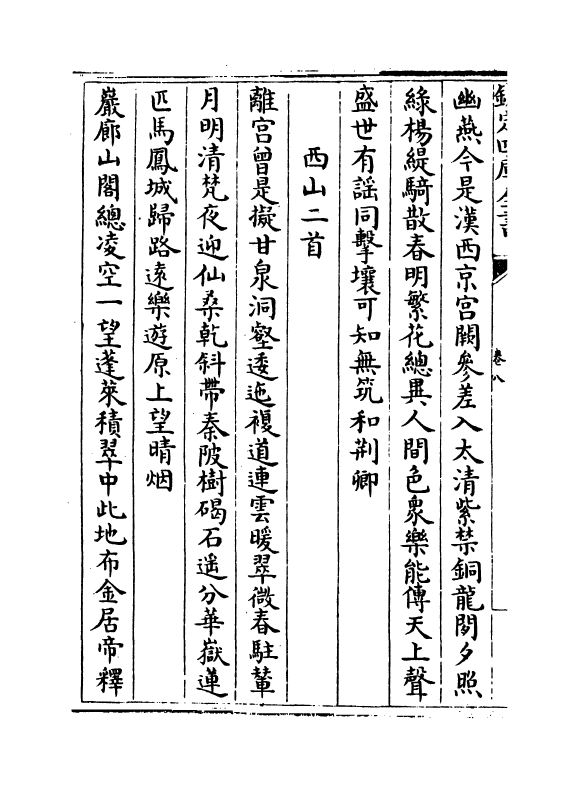 欽定四庫全書
卷八
幽燕今是漢西京宫闕參差入太清紫禁銅龍閣夕照
綠楊緹騎散春明繁花總異人間色衆樂能傳天上聲
盛世有謡同擊壤可知無筑和荆卿
西山二首
離宫曾是擬甘泉洞壑逶迤複道連雲暖翠微春駐輦
月明清梵夜迎仙桑乾斜帶秦陂樹碣石遥分華嶽蓮
匹馬鳳城歸路遠樂遊原上望晴烟
巖廊山閣總凌空一望蓬萊積翠中此地布金居帝釋